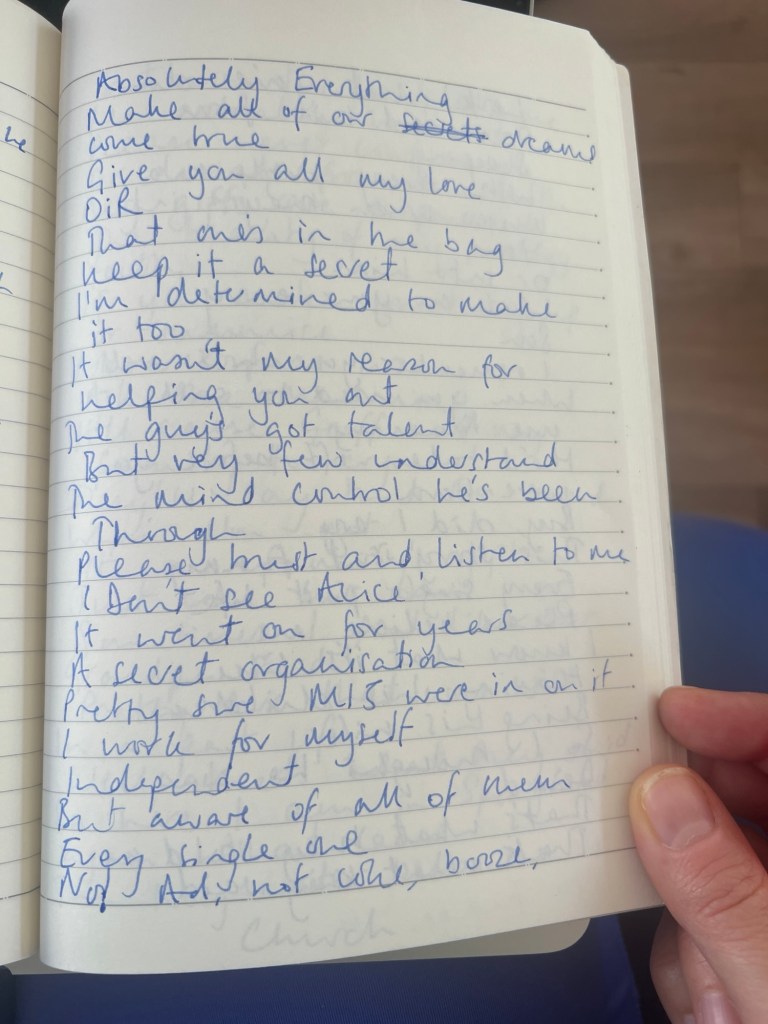 Absolutely Everything
Make all of our secrets dreams
come true
Give you all my love
OiR
That one's in the bag
Keep it a secret
I'm determined to make
it too
It wasn't my reason for
helping you out
The guy's got talent
But very few understand
The mind control he's been
Through
Please trust and listen to me
I Don't see Alice
It went on for years
A secret organisation
Pretty sure MI5 were in on it
I work for myself
Independent
But aware of all of them
Every single one
Not Ad, not coke, booze,
Church
he